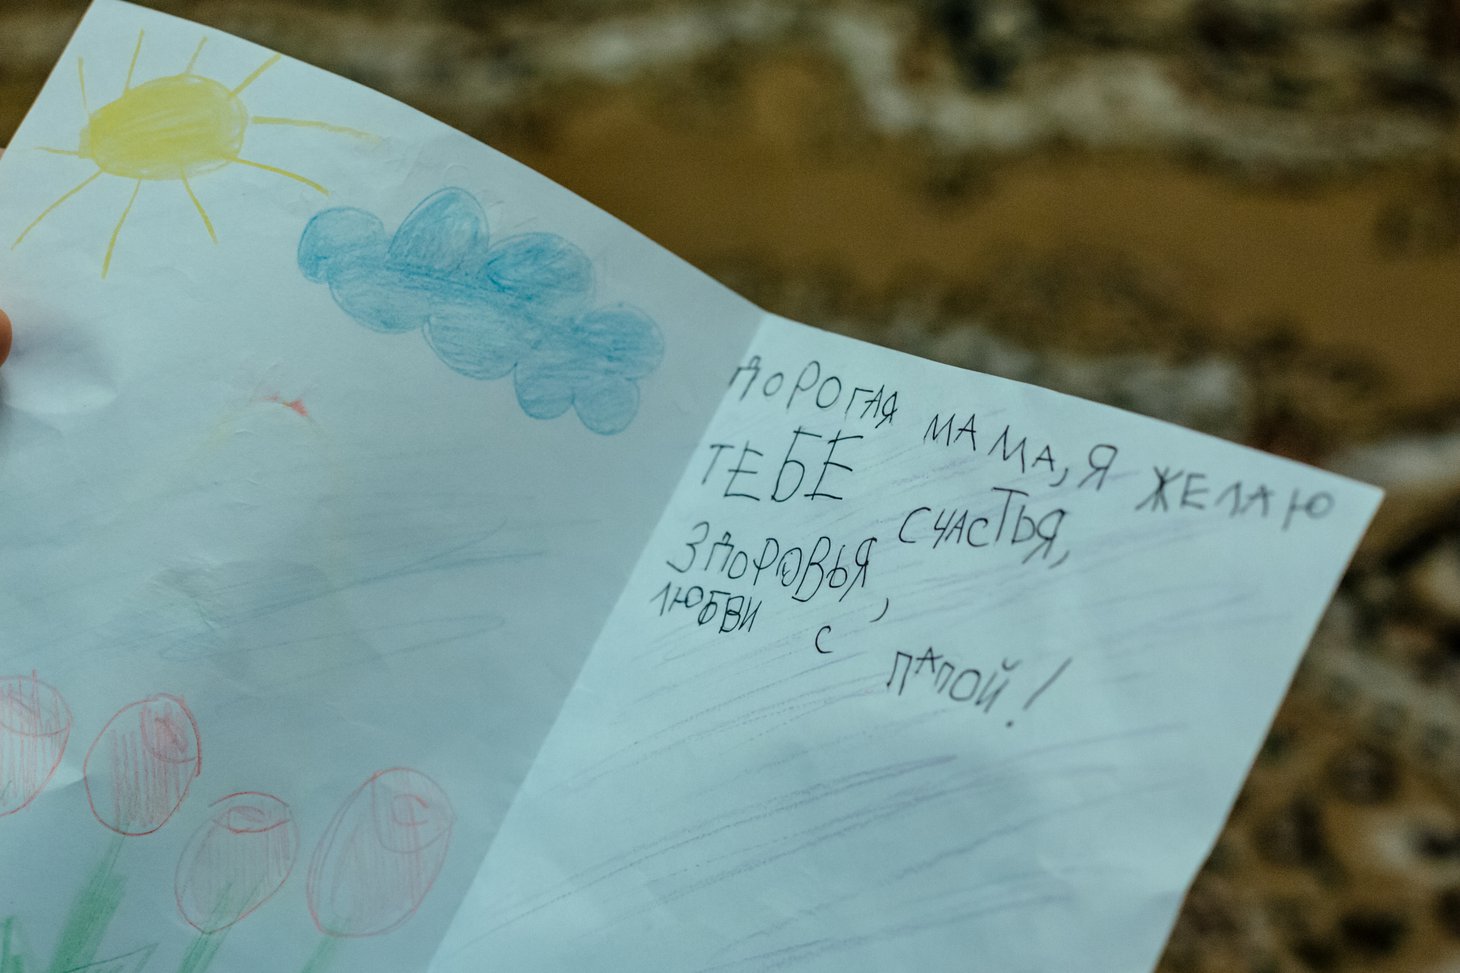 ДОРОГАЯ МАМА, Я ЖЕЛАЮ
ТЕБЕ СЧАСТЬЯ,
ЗДОРОВЬЯ,
ЛЮБВИ С ПАПОЙ!